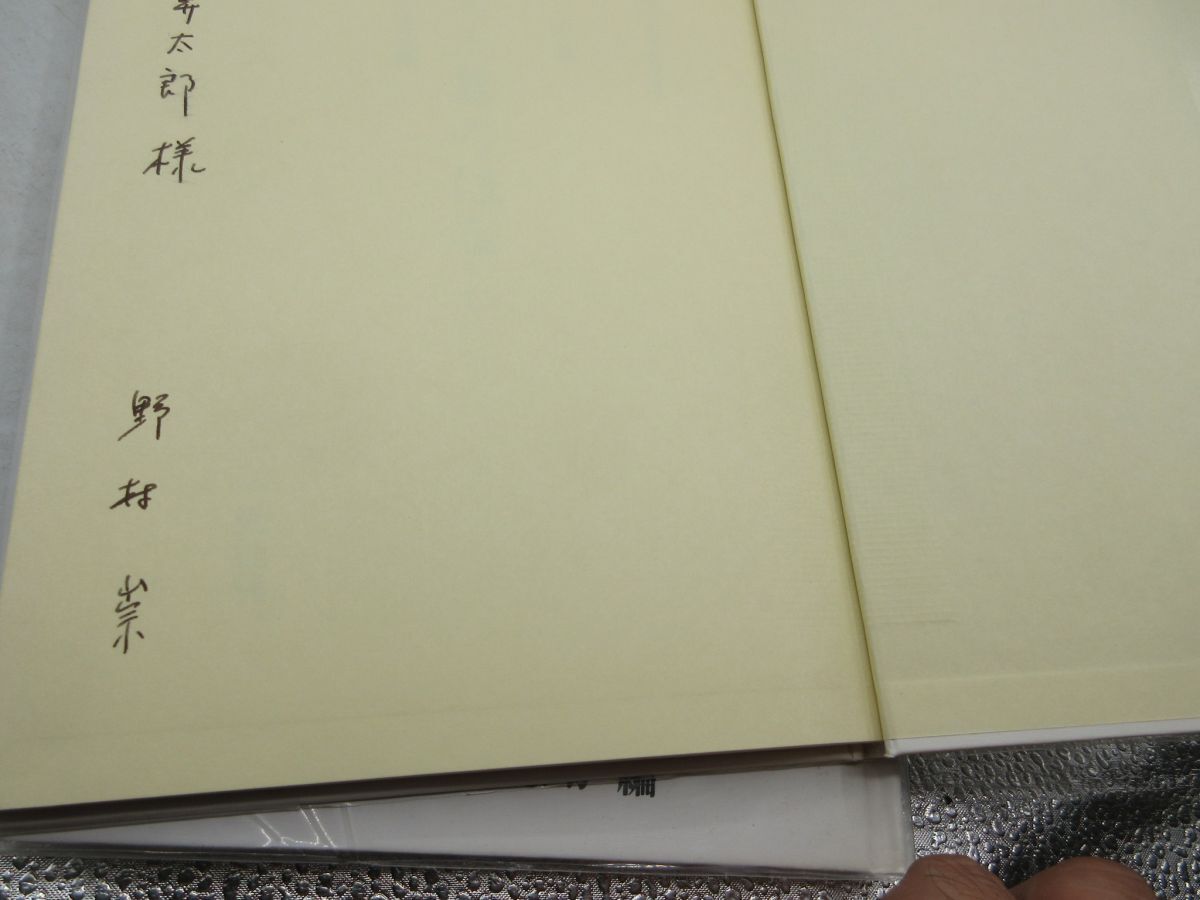 太郎様
野村崇